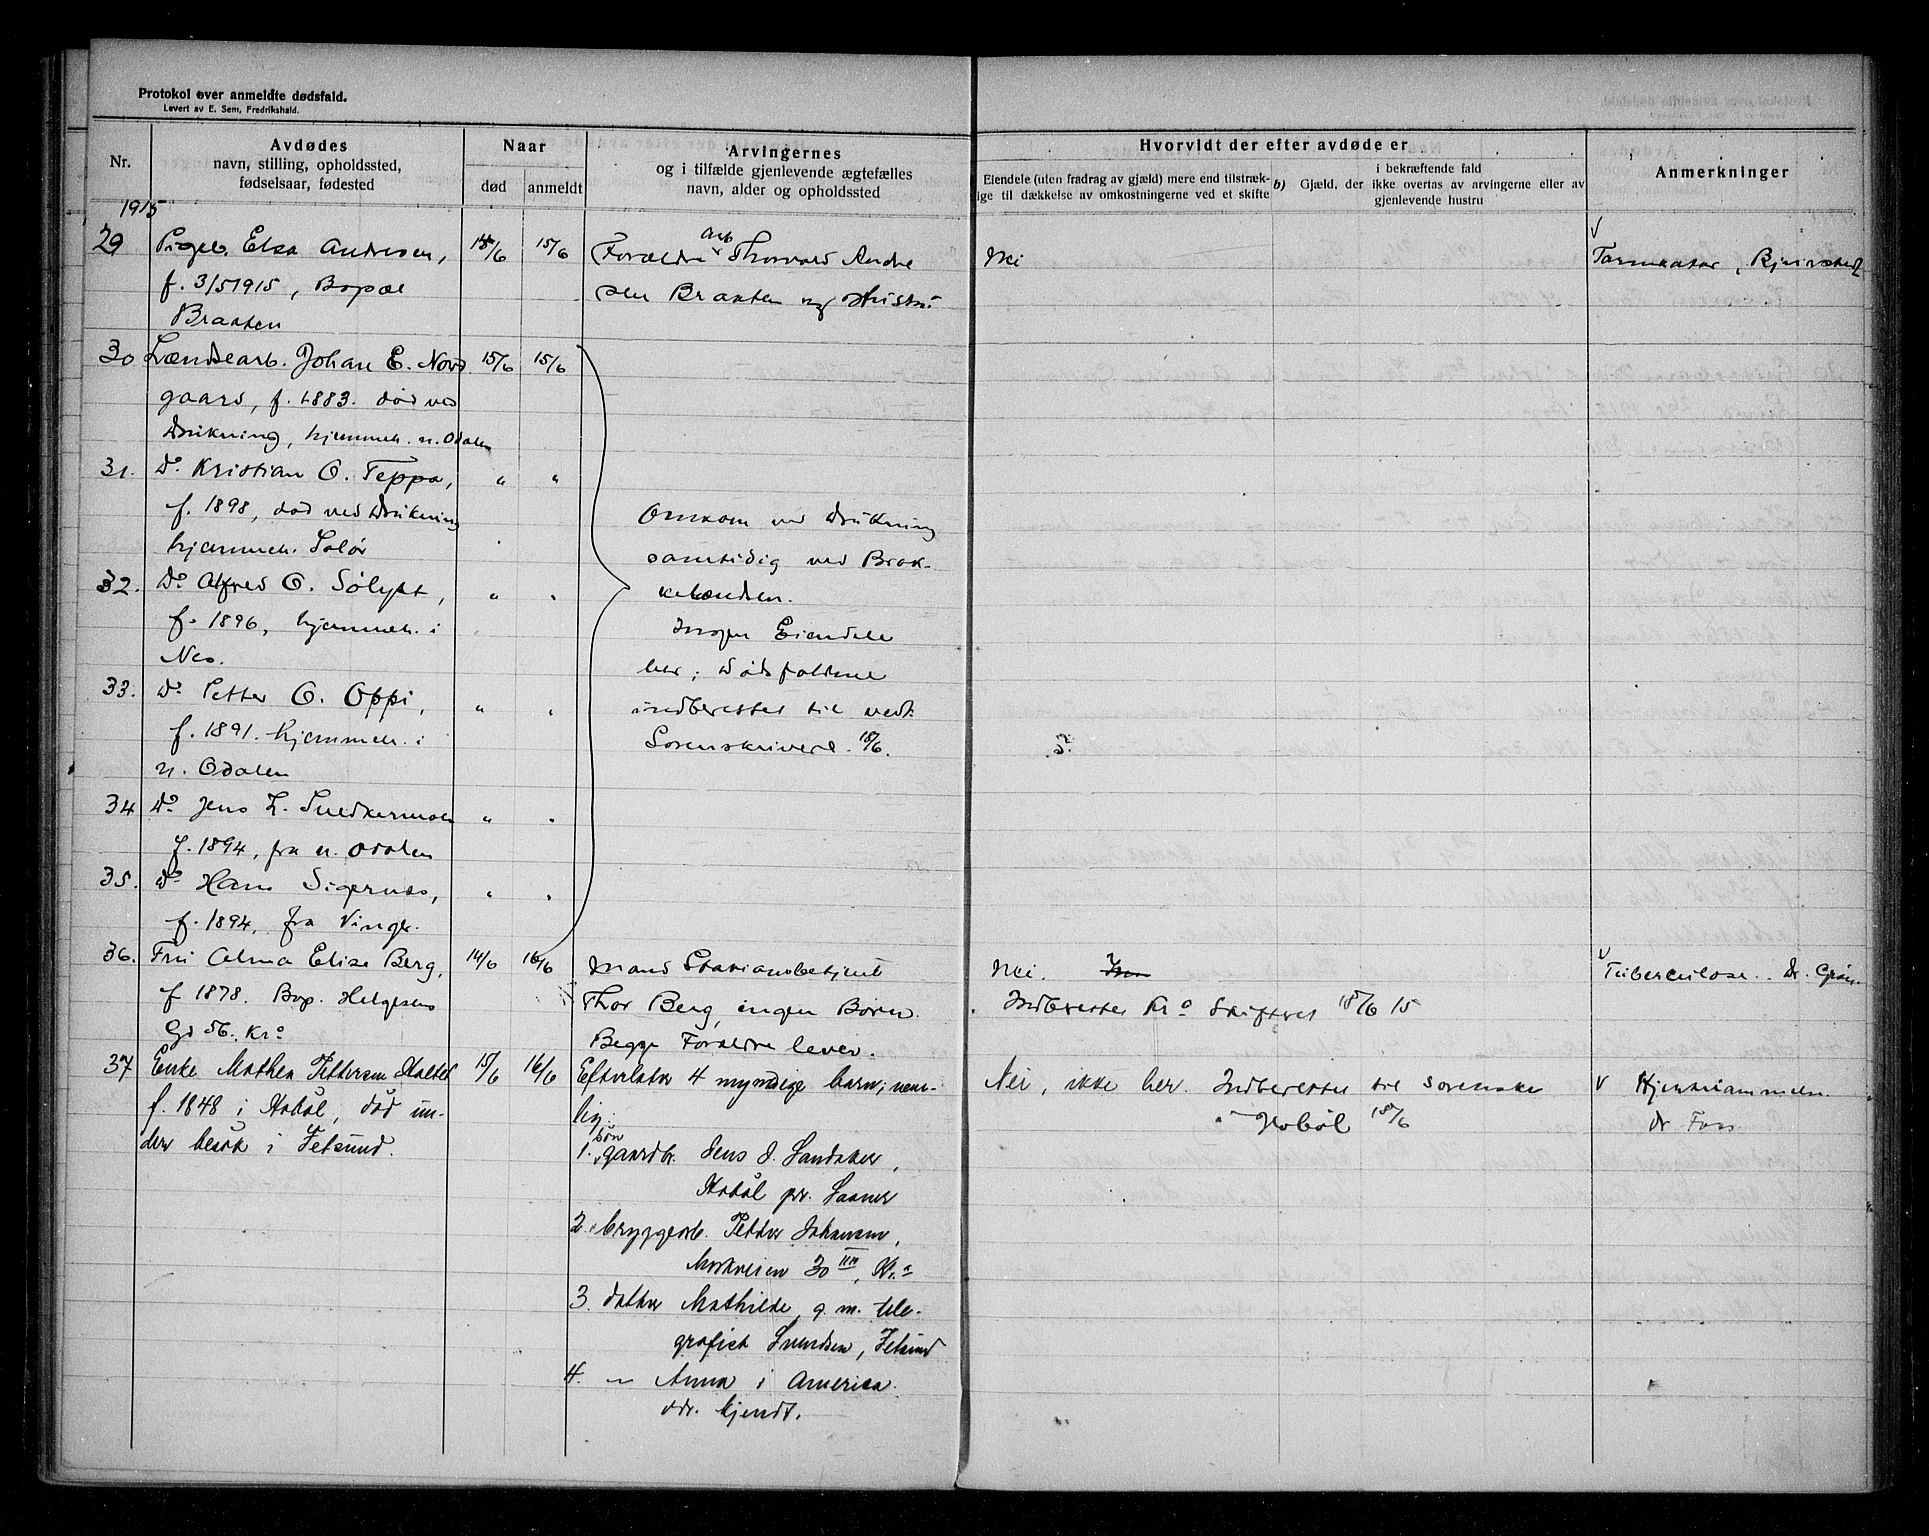 Protokol over anmeldte dødsfald.
Levert av E. Sem, Fredrikshald.
Nr.
Avdødes
navn, stilling, opholdssted,
fødselsaar, fødested
Naar
død
anmeldt
Arvingernes
og i tilfælde gjenlevende ægtefælles
navn, alder og opholdssted
Hvorvidt der efter avdøde er
Eiendele (uten fradrag av gjæld) mere end tilstræk-
ige til dækkelse av omkostningerne ved et skifte
b) Gjæld, der
i bekræftende fald
ikke overtas av arvingerne eller av
gjenlevende hustru
Anmerkninger
1915
29 Pigeb. Elsa Andresen,
f. 3/5 1915, Bopæl
Braaten
15/6
Forældre Arb. Thorvald Andre
sen Braaten og Hustru
Nei
Tarmkatar,
30 Lændsearb. Johan E. Nord
gaard, f. 1883. død ved
Drukning, hjemmeh. n. Odalen
15/6 15/6
31. Do Kristian O. Teppa,
f. 1898, død ved Drukning
hjemmeh. Solør
" "
32. Do Alfred O.
f. 1896, hjemmeh. i
Nes.
" "
33. Do Petter O. Oppi,
f. 1891. hjemmeh. i
n. Odalen
" "
34 Do Jens L. Snedkermoen
f. 1894, fra n. Odalen
" "
35. Do Hans Sigernes,
f. 1894, fra Vinger.
" "
Omkom ved Drukning
samtidig ved Brak-
kelændsen.
Ingen Eiendele
her; Dødsfaldene
indberettet til vedk.
Sorenskrivere 18/6.
36. Fru Alma Elise Berg,
f 1878. Bop. Helgesens
Gd 56. Kra
14/6 16/6
Mand Stationsbetjent
Thor Berg, ingen Børn.
Begge Forældre lever.
Nei.
Indberettet Kra Skifteret 18/6 15
Tuberculose. Dr.
37 Enke Mathea Pettersen
f. 1848 i Hobøl, død un-
der besøk i Fetsund.
15/6 16/6
Efterlater 4 myndige barn, nem-
lig:
1. søn gaardbr. Jens J. Sandaker,
Hobøl pr. Saaner
2. " bryggearb. Petter Johansen,
Markveien 30 III, Kr.a
3. datter Mathilde g. m. tele-
grafist Svendsen, Fetsund
4. — Anna i America.
adr. kjendt.
Nei, ikke her. Indberettet til sorenskr
i Hobøl 18/6
Hjertelammelse
dr Foss